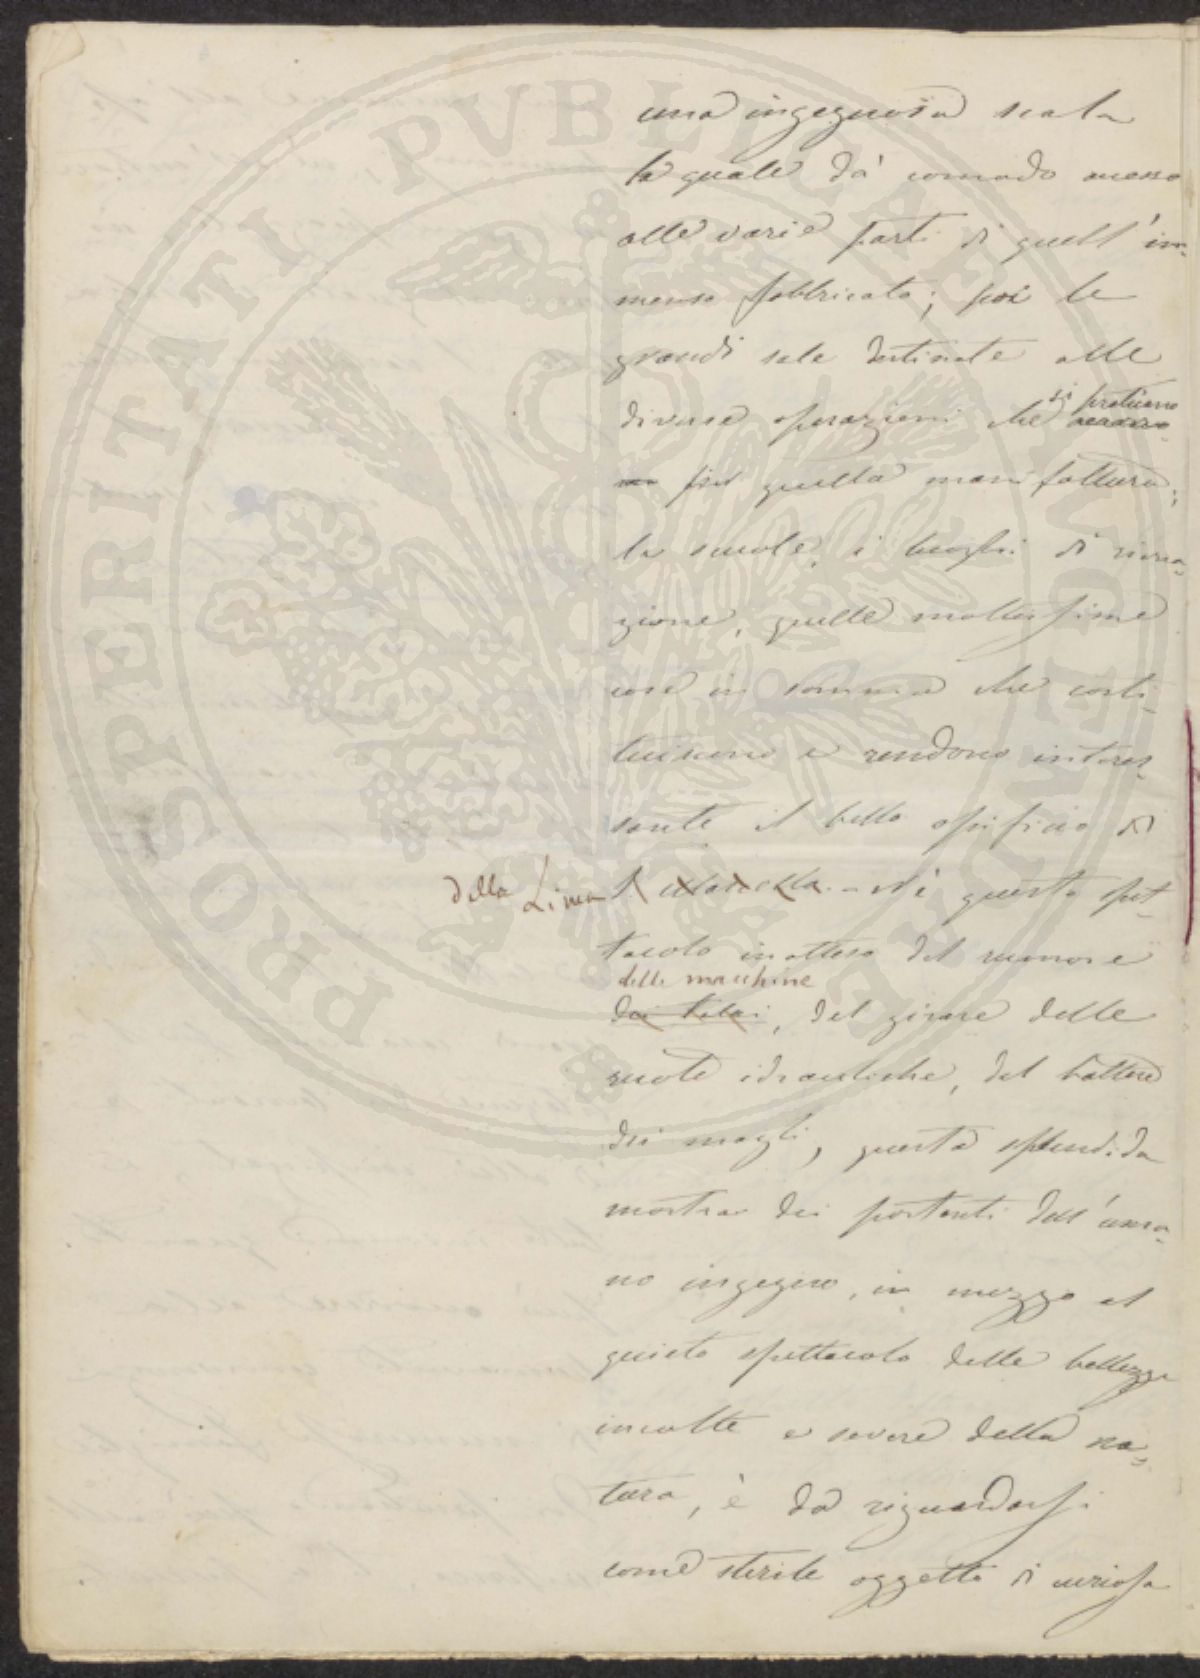 una ingegnosa scala
la quale dà comodo accesso
alle varie parti di quell'im-
menso fabbricato; poi le
grandi sale destinate alle
si praticano
diverse operazioni che
quella manifattura;
le scuole, i luoghi di ricrea-
zione, quelle moltissime
cose in somma che costi-
tuiscono e rendono interes-
sante il bello opificio di
della Lima - Nè questo spet-
tacolo inatteso del rumore
delle macchine
dei telai, del girare delle
ruote idrauliche, del battere
dei magli, questa splendida
mostra dei portenti dell'uma-
no ingegno, in mezzo al
quieto spettacolo delle bellezze
incolte e severe della na-
tura, è da riguardarsi
come sterile oggetto di curiosa
PROSPERITATI PVBLICAE AVGENDAE